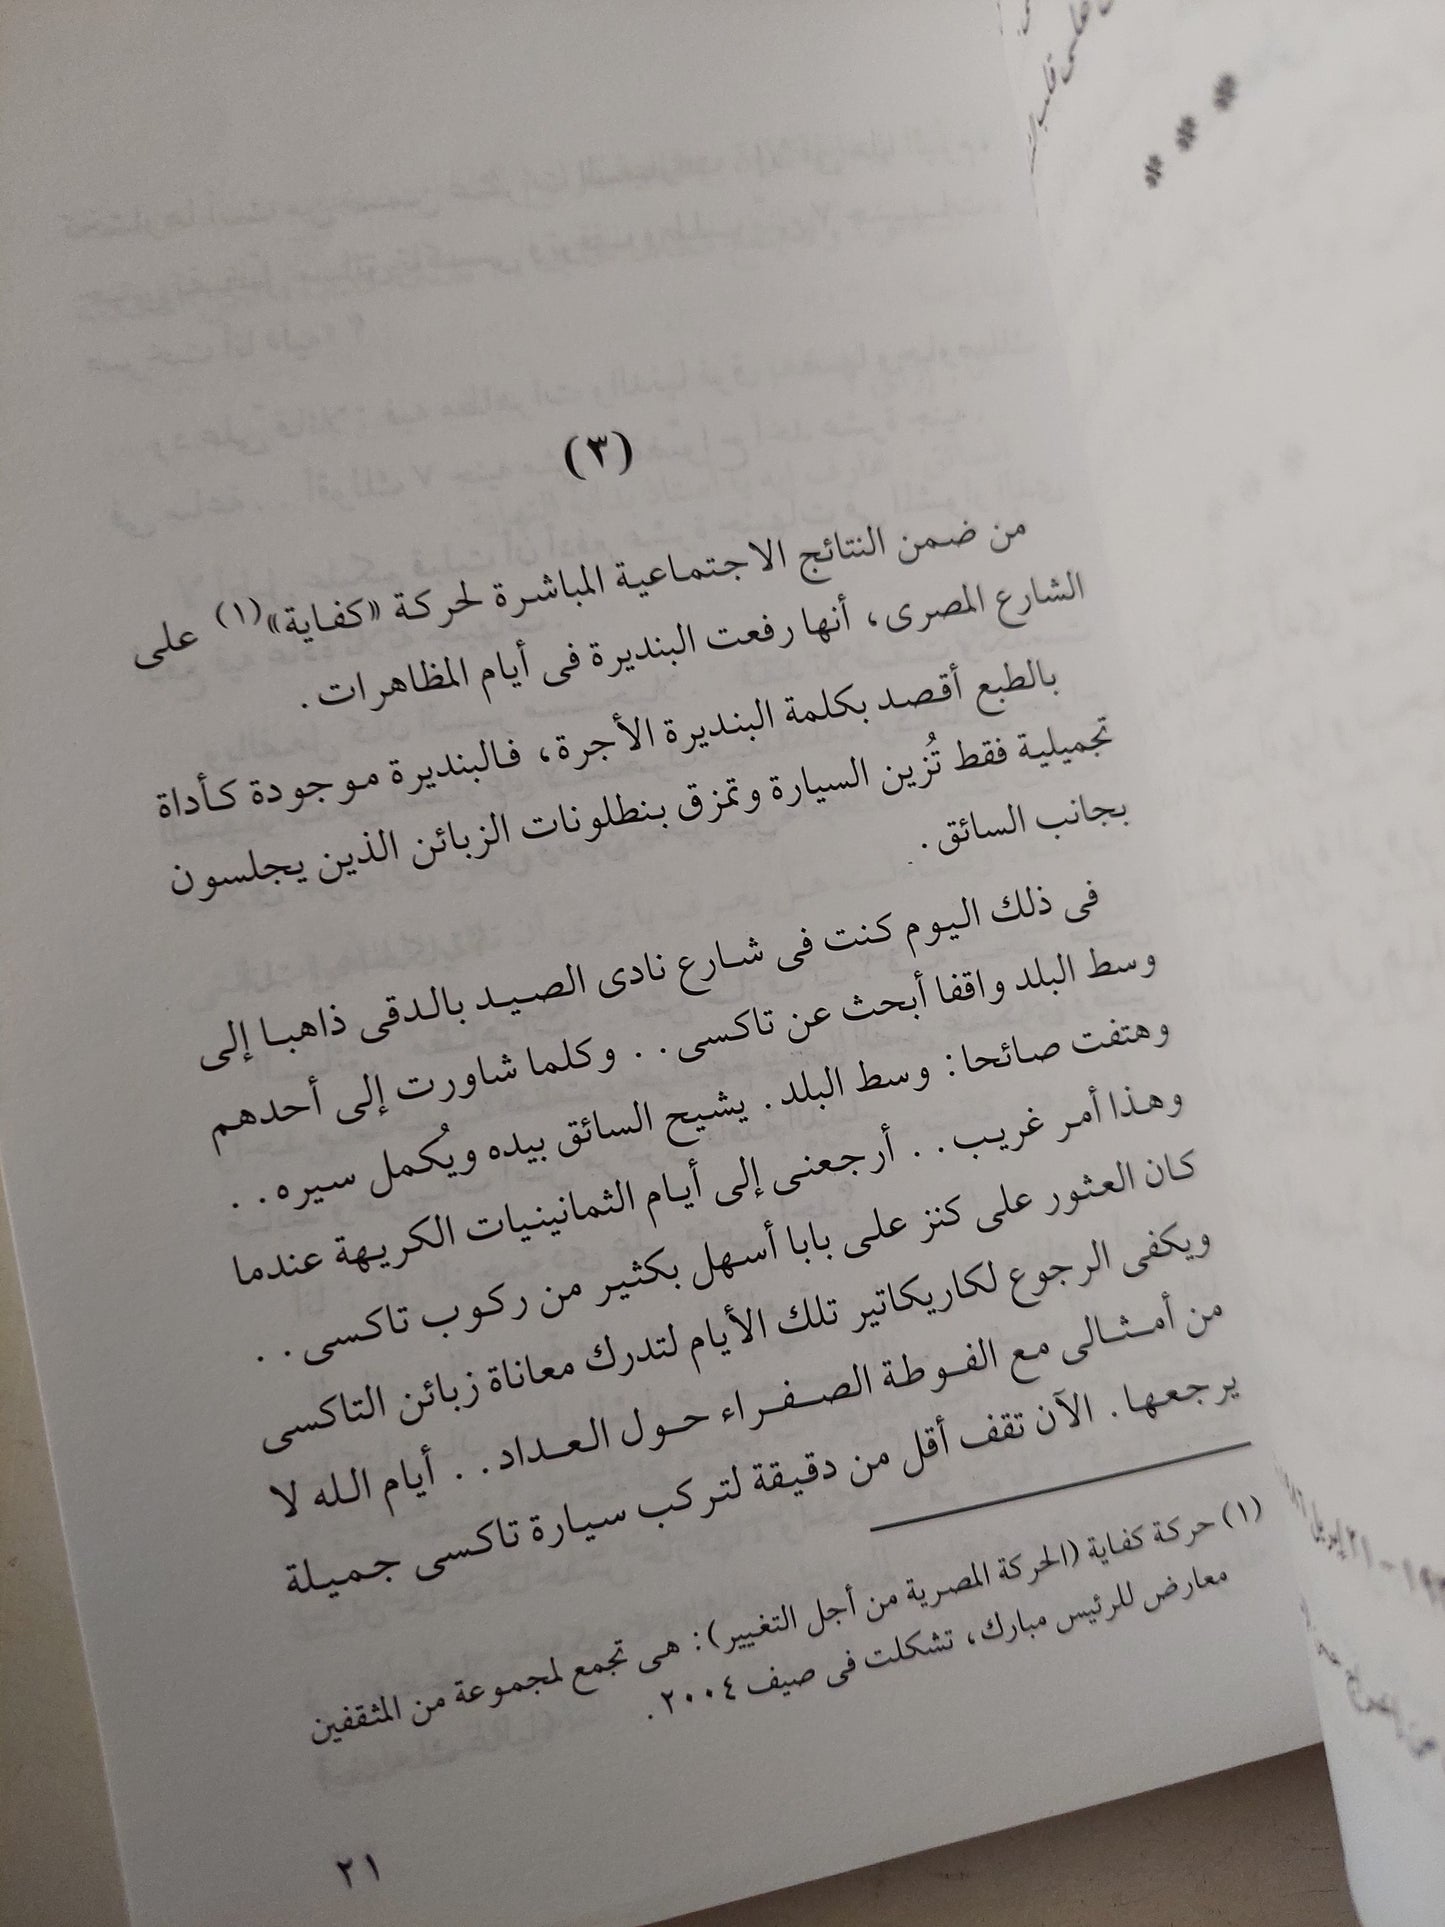 (٣)
من ضمن النتائج الاجتماعية المباشرة لحركة «كفاية»(١) على
الشارع المصرى، أنها رفعت البنديرة فى أيام المظاهرات.
بالطبع أقصد بكلمة البنديرة الأجرة، فالبنديرة موجودة كأداة
تجميلية فقط تُزين السيارة وتمزق بنطلونات الزبائن الذين يجلسون
بجانب السائق.
فى ذلك اليوم كنت فى شارع نادى الصيد بالدقى ذاهبا إلى
وسط البلد واقفا أبحث عن تاكسى.. وكلما شاورت إلى أحدهم
وهتفت صائحا: وسط البلد. يشيح السائق بيده ويُكمل سيره..
وهذا أمر غريب.. أرجعنى إلى أيام الثمانينيات الكريهة عندما
كان العثور على كنز على بابا أسهل بكثير من ركوب تاكسى..
ويكفى الرجوع لكاريكاتير تلك الأيام لتدرك معاناة زبائن التاكسى
من أمثالى مع الفوطة الصفراء حول العداد.. أيام الله لا
يرجعها. الآن تقف أقل من دقيقة لتركب سيارة تاكسى جميلة
(١) حركة كفاية (الحركة المصرية من أجل التغيير): هى تجمع لمجموعة من المثقفين
معارض للرئيس مبارك، تشكلت فى صيف ٢٠٠٤.
٢١
* * *